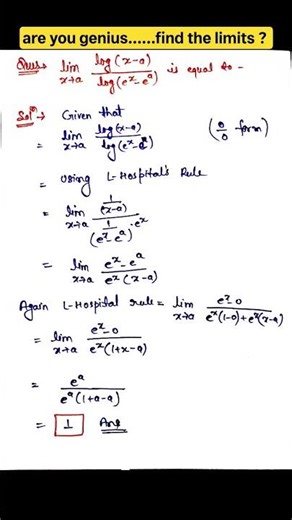 are you genius......find the limits ?
Ques→ lim x→a log(x-a) / log(e^x-e^a) is equal to -
Sol^n→ Given that
= lim x→a log(x-a) / log(e^x-e^a) (0/0 form)
= Using L-Hospital's Rule
= lim x→a (1/(x-a)) / (1/(e^x-e^a) · e^x)
= lim x→a (e^x-e^a) / (e^x(x-a))
Again L-Hospital rule = lim x→a (e^x-0) / (e^x(1-0)+e^x(x-a))
= lim x→a (e^x-0) / (e^x(1+x-a))
= e^a / (e^a(1+a-a))
= 1 Ans